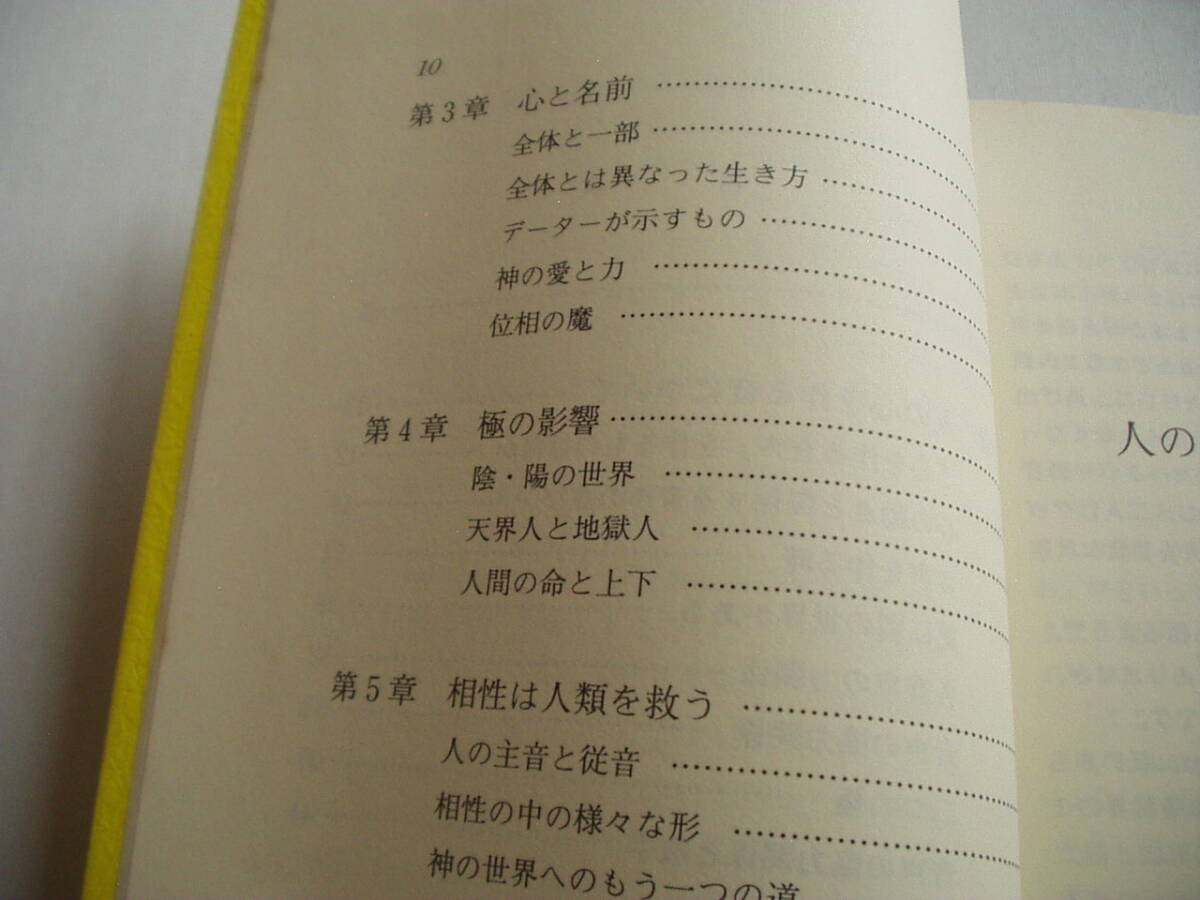 10
第3章 心と名前
全体と一部
全体とは異なった生き方
データーが示すもの
神の愛と力
位相の魔
第4章 極の影響
陰・陽の世界
天界人と地獄人
人間の命と上下
第5章 相性は人類を救う
人の主音と従音
相性の中の様々な形
神の世界へのもう一つの道
人の